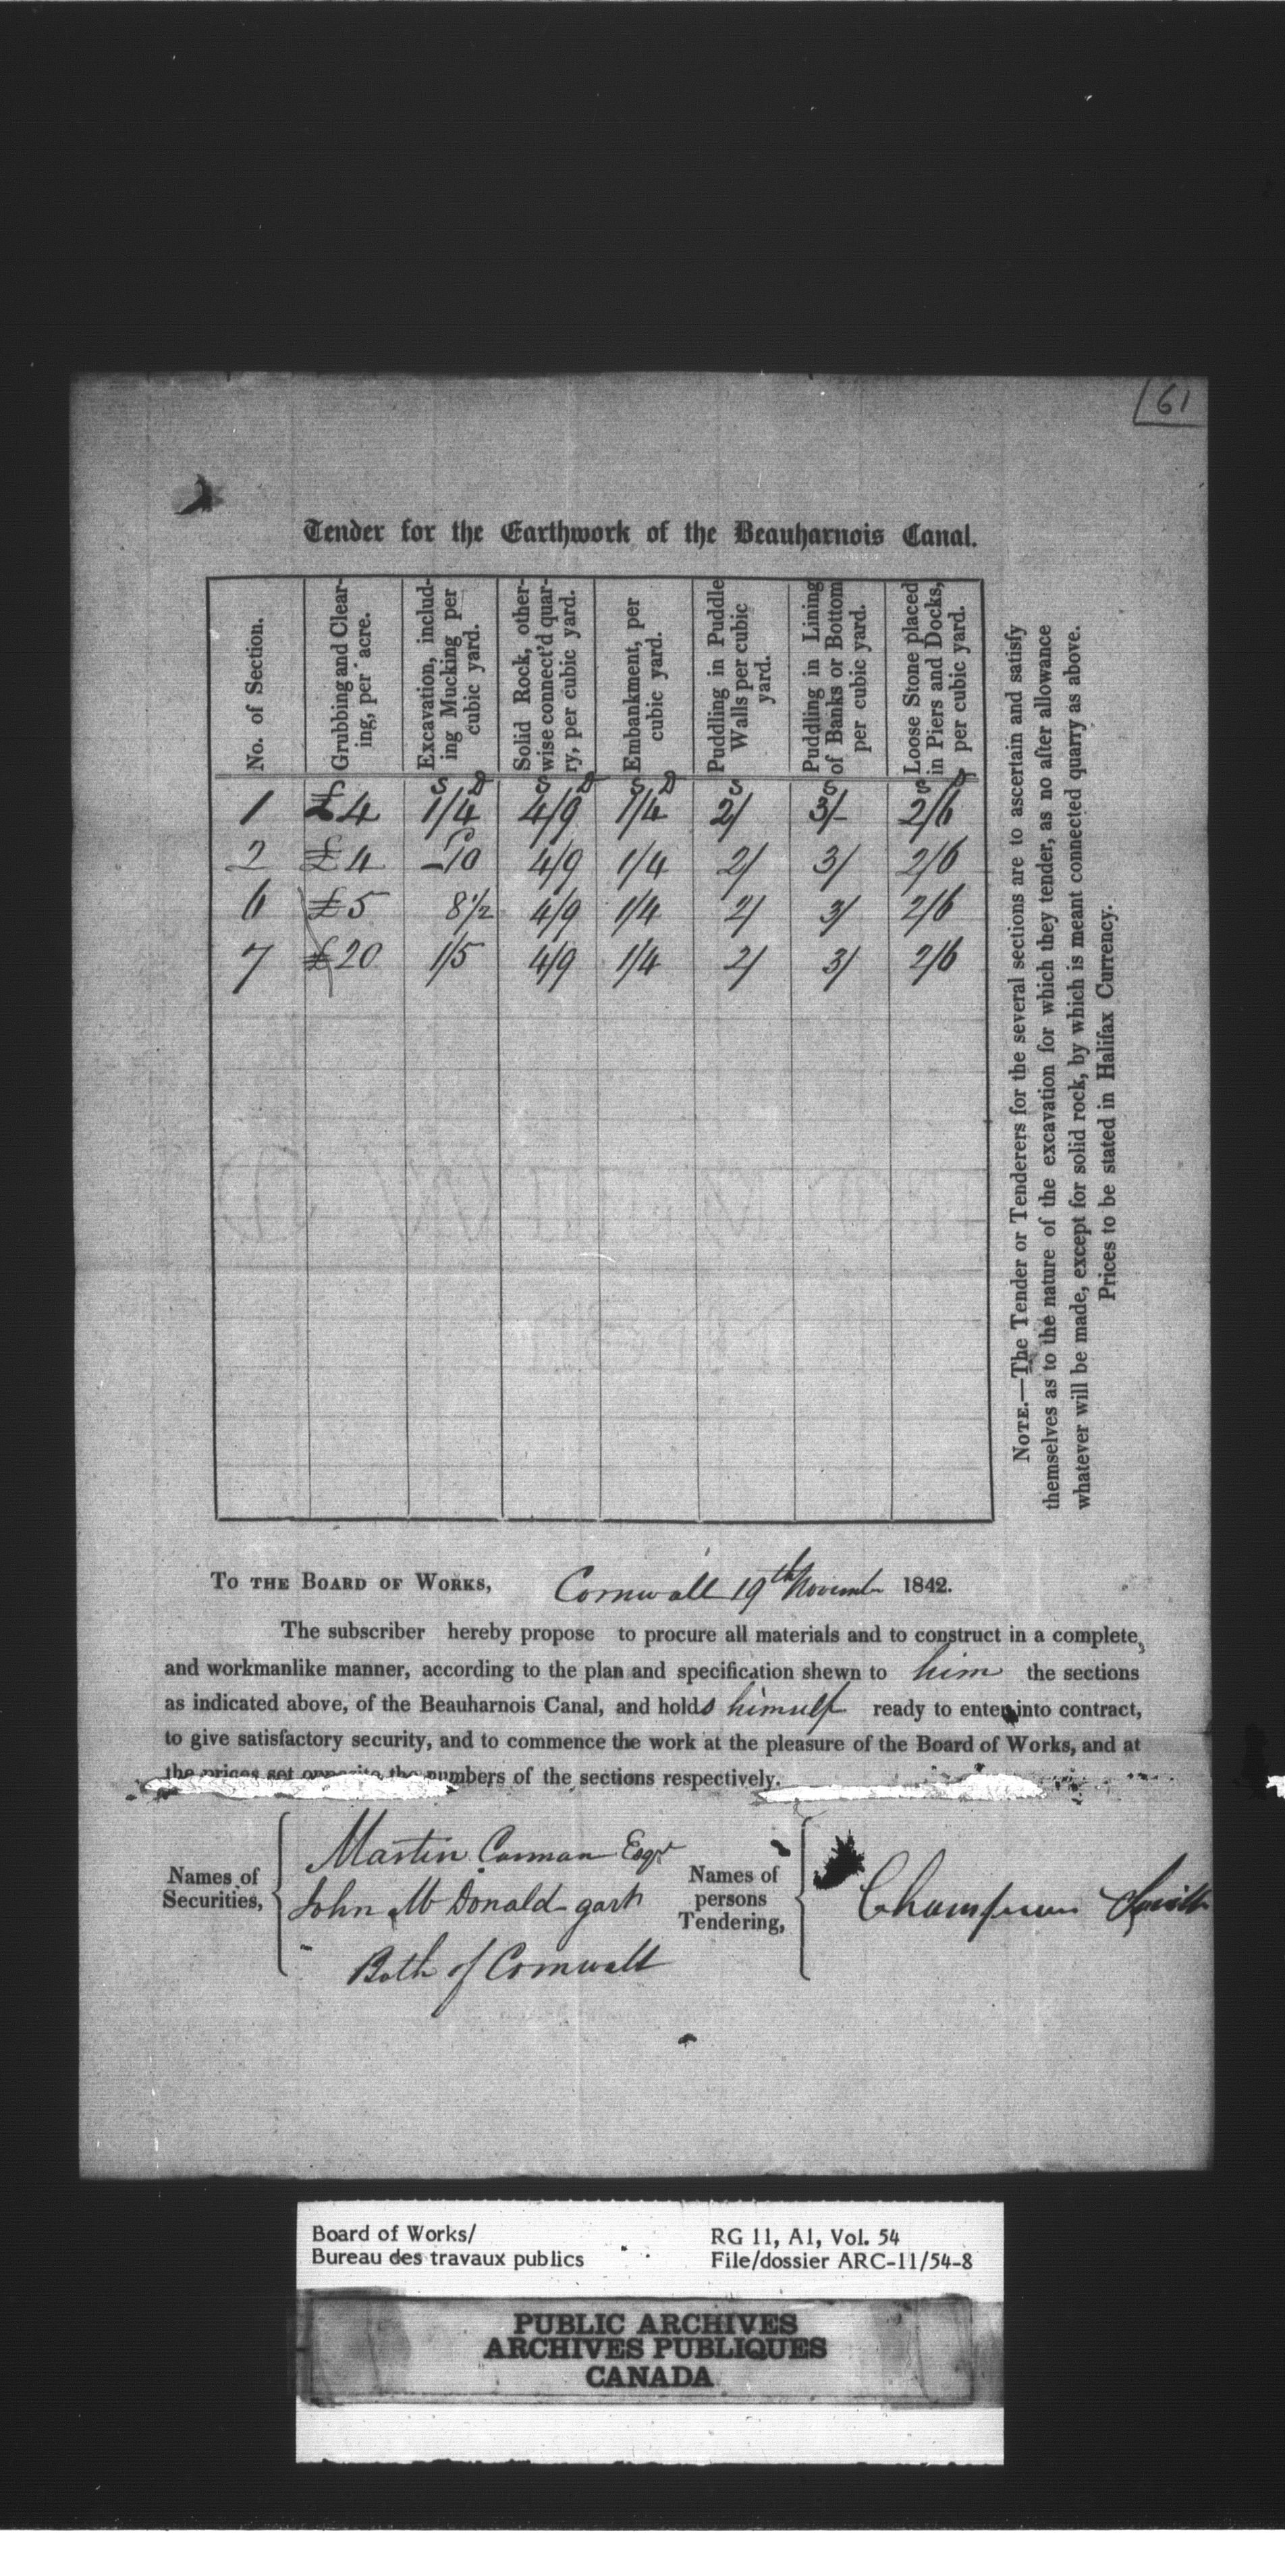 61
Tender for the Earthwork of the Beauharnois Canal.
No. of Section.
Grubbing and Clear-
ing, per acre.
Excavation, includ-
ing Mucking per
cubic yard.
Solid Rock, other-
wise connect'd quar-
ry, per cubic yard.
Embankment, per
cubic yard.
Puddling in Puddle
Walls per cubic
yard.
Puddling in Lining
of Banks or Bottom
per cubic yard.
Loose Stone placed
in Piers and Docks,
per cubic yard.
S D S D S D S S S D
1 £4 1/4 4/9 1/4 2/ 3/- 2/6
2 £4 10 4/9 1/4 2/ 3/ 2/6
6 £5 8½ 4/9 1/4 2/ 3/ 2/6
7 £20 1/5 4/9 1/4 2/ 3/ 2/6
NOTE.—The Tender or Tenderers for the several sections are to ascertain and satisfy
themselves as to the nature of the excavation for which they tender, as no after allowance
whatever will be made, except for solid rock, by which is meant connected quarry as above.
Prices to be stated in Halifax Currency.
TO THE BOARD OF WORKS, Cornwall 19th November 1842.
The subscriber hereby propose to procure all materials and to construct in a complete,
and workmanlike manner, according to the plan and specification shewn to him the sections
as indicated above, of the Beauharnois Canal, and holds himself ready to enter into contract,
to give satisfactory security, and to commence the work at the pleasure of the Board of Works, and at
the prices set opposite the numbers of the sections respectively.
Names of
Securities,
Martin Carman Esqr
John McDonald
Both of Cornwall
Names of
persons
Tendering,
Champion Smith
Board of Works/
Bureau des travaux publics
RG 11, A1, Vol. 54
File/dossier ARC-11/54-8
PUBLIC ARCHIVES
ARCHIVES PUBLIQUES
CANADA